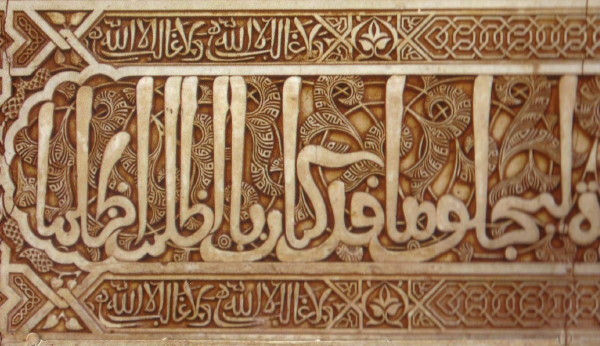 ولا غالب الا الله ولا غالب الا الله
ة ليجلو ما قد كان بالظلم اظلما
ولا غالب الا الله ولا غالب الا الله